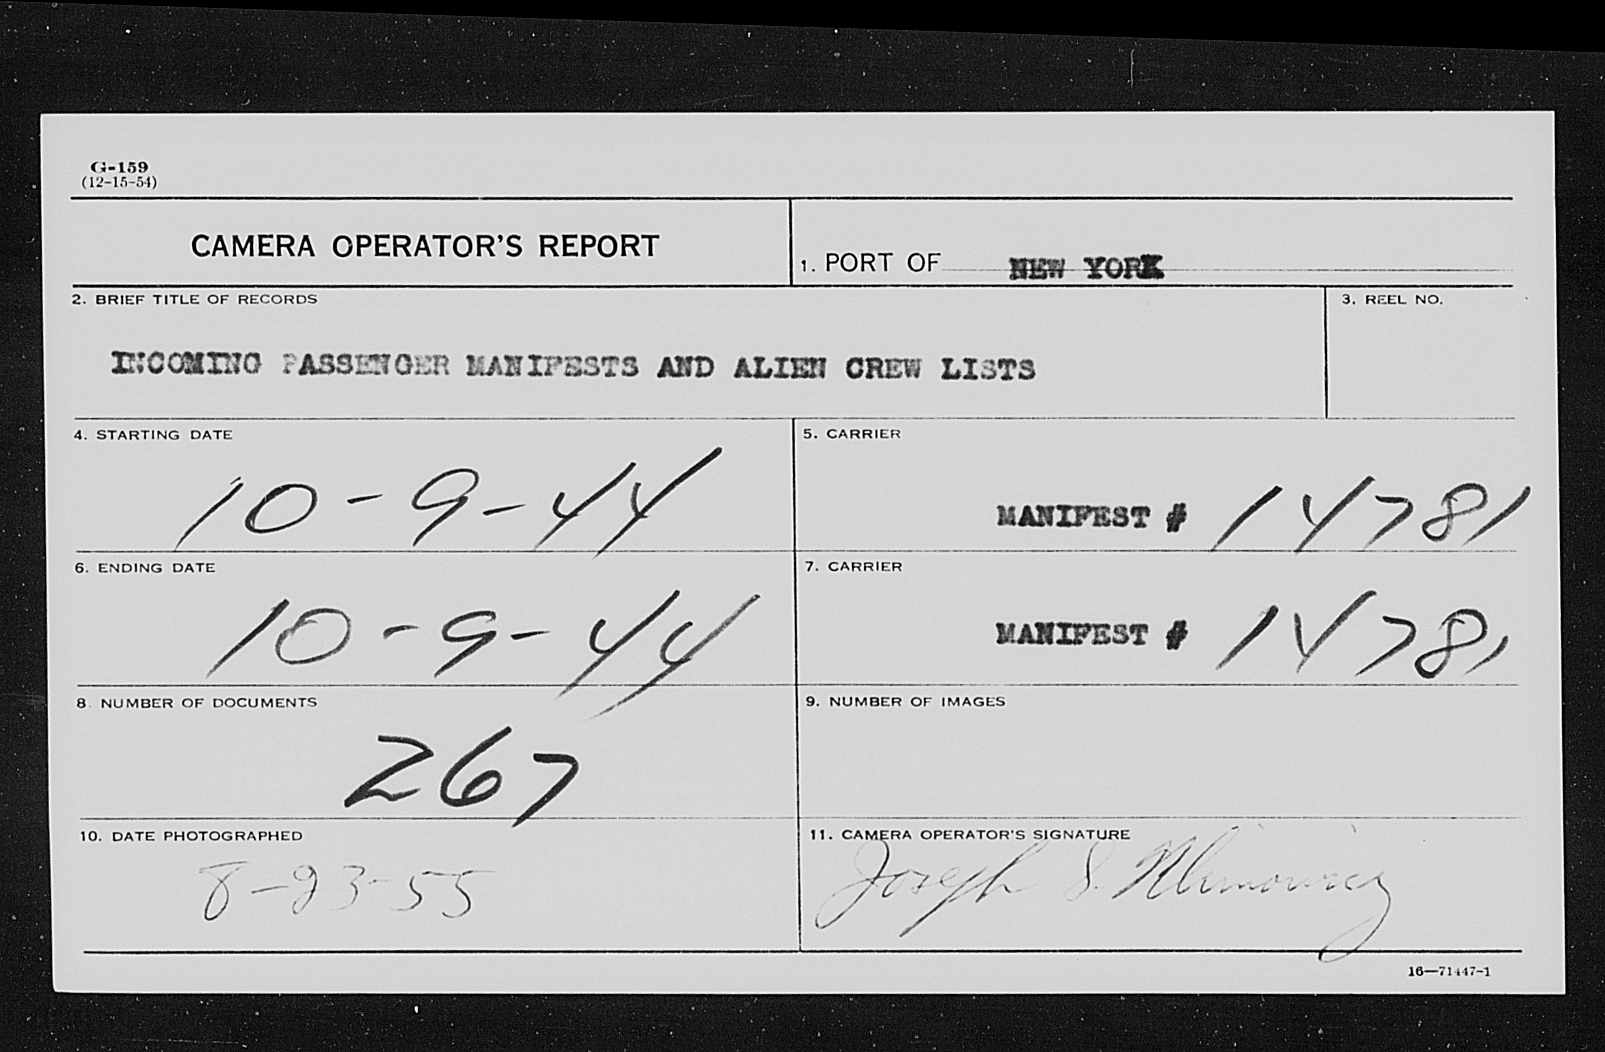 G-159
(12-15-54)
CAMERA OPERATOR'S REPORT
1. PORT OF NEW YORK
2. BRIEF TITLE OF RECORDS
INCOMING PASSENGER MANIFESTS AND ALIEN CREW LISTS
3. REEL NO.
4. STARTING DATE
10-9-44
5. CARRIER
MANIFEST # 14781
6. ENDING DATE
10-9-44
7. CARRIER
MANIFEST # 14781
8. NUMBER OF DOCUMENTS
267
9. NUMBER OF IMAGES
10. DATE PHOTOGRAPHED
8-23-55
11. CAMERA OPERATOR'S SIGNATURE
Joseph S.
16—71447-1